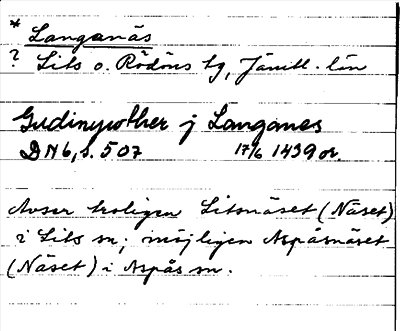 * Langanäs
? Lits o. Rödöns tg, Jämtl. län
Gudinywther j Langanes
DN 6, s. 507 17/6 1439 or.
Avser troligen Litsnäset (Näset)
i Lits sn; möjligen Aspåsnäset
(Näset) i Aspås sn.